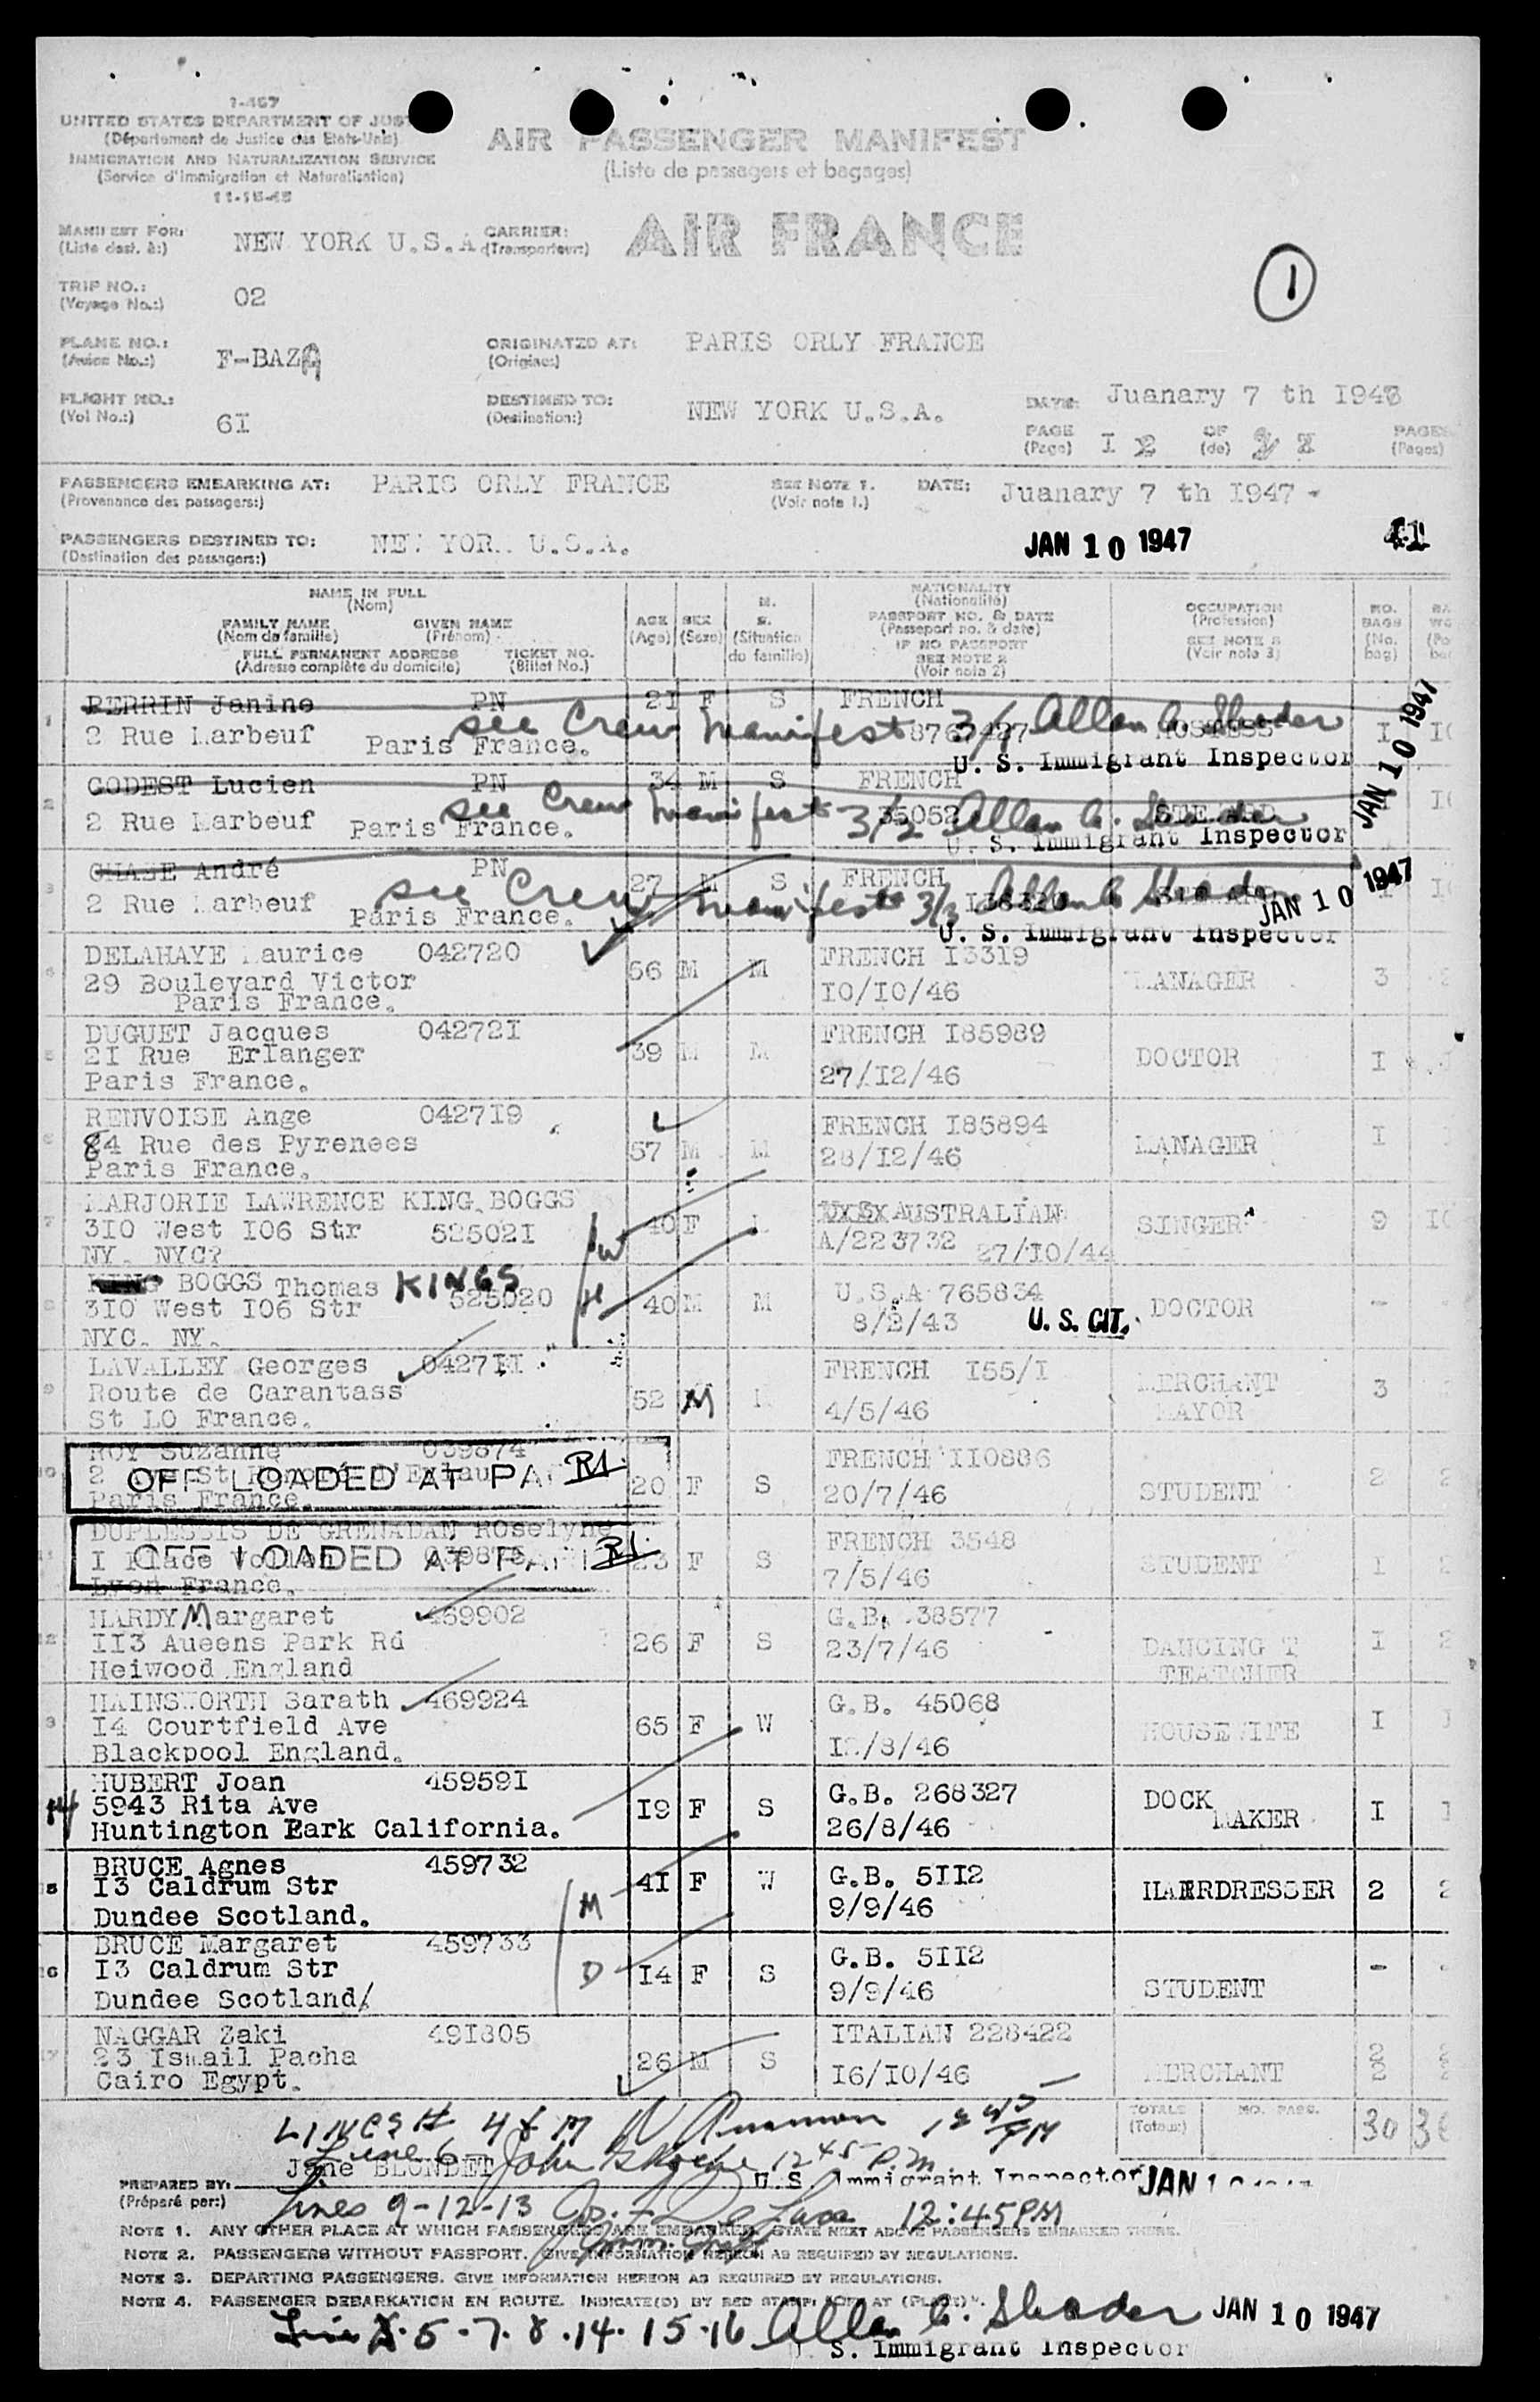 I-467
UNITED STATES DEPARTMENT OF JUST
(Département de Justice des Etats-Unis)
IMMIGRATION AND NATURALIZATION SERVICE
(Service d'immigration et Naturalisation)
11-15-45
AIR PASSENGER MANIFEST
(Liste de passagers et bagages)
MANIFEST FOR:
(Liste dest. à:)
NEW YORK U.S.A
CARRIER:
(Transporteur:)
AIR FRANCE
1
TRIP NO.:
(Voyage No.:)
02
PLANE NO.:
(Avion No.:)
F-BAZA
ORIGINATED AT:
(Origine:)
PARIS ORLY FRANCE
FLIGHT NO.:
(Vol No.:)
6I
DESTINED TO:
(Destination:)
NEW YORK U.S.A.
DATE: Juanary 7 th I94
PAGE
(Page)
I 2
OF
(de)
PAGES
(Pages)
PASSENGERS EMBARKING AT:
(Provenance des passagers:)
PARIS ORLY FRANCE
SEE NOTE 1.
(Voir note 1.)
DATE: Juanary 7 th I947
PASSENGERS DESTINED TO:
(Destination des passagers:)
NE. YOR. U.S.A.
JAN 10 1947
41
NAME IN FULL
(Nom)
FAMILY NAME
(Nom de famille)
GIVEN NAME
(Prénom)
FULL PERMANENT ADDRESS
(Adresse complète du domicile)
TICKET NO.
(Billet No.)
AGE
(Age)
SEX
(Sexe)
M.
S.
(Situation
de famille)
NATIONALITY
(Nationalité)
PASSPORT NO. & DATE
(Passeport no. & date)
IF NO PASSPORT
SEE NOTE 2
(Voir note 2)
OCCUPATION
(Profession)
SEE NOTE 3
(Voir note 3)
NO.
BAGS
(No.
bag)
1 PERRIN Janine PN 2I F S FRENCH
2 Rue Marbeuf Paris France. 8767427 HOSTESS I
see Crew Manifest 3/1 Allan C. Shader
U. S. Immigrant Inspector
JAN 10 1947
2 GODEST Lucien PN 34 M S FRENCH
2 Rue Marbeuf Paris France. 35052 STEWARD I
see Crew Manifest 3/2 Allan C. Shader
U. S. Immigrant Inspector
3 CHASE André PN 27 M S FRENCH
2 Rue Marbeuf Paris France. I36320 I
see Crew manifest 3/3 Allan C Shader
JAN 10 1947
U. S. Immigrant Inspector
4 DELAHAYE Maurice 042720 56 M M FRENCH I3319 MANAGER 3
29 Boulevard Victor I0/I0/46
Paris France.
5 DUGUET Jacques 04272I 39 M M FRENCH I85989 DOCTOR I
2I Rue Erlanger 27/I2/46
Paris France.
6 RENVOISE Ange 0427I9 57 M M FRENCH I85894 MANAGER I
84 Rue des Pyrenees 28/I2/46
Paris France.
7 MARJORIE LAWRENCE KING BOGGS 40 F AUSTRALIAN SINGER 9
3I0 West I06 Str 52502I W A/223732 27/I0/44
NY. NYC?
8 KING BOGGS Thomas KINGS 525020 H 40 M M U.S.A 765834 DOCTOR -
3I0 West I06 Str 8/2/43 U. S. CIT.
NYC. NY.
9 LAVALLEY Georges 0427II 52 M FRENCH I55/I MERCHANT 3
Route de Carantass 4/5/46 MAYOR
St LO France.
10 ROY Suzanne 039874 20 F S FRENCH II0886 STUDENT 2
OFF LOADED AT PA
20/7/46
Paris France.
11 DUPLESSIS DE GRENADAN Roselyne 23 F S FRENCH 3548 STUDENT I
OFF LOADED AT PARI
I Place 039875 7/5/46
Lyon France.
12 HARDY Margaret 459902 26 F S G.B. 38577 DANCING T I
II3 Aueens Park Rd 23/7/46 TEATCHER
Heiwood England
3 HAINSWORTH Sarath 469924 65 F W G.B. 45068 HOUSEWIFE I
I4 Courtfield Ave I./8/46
Blackpool England.
14 HUBERT Joan 45959I I9 F S G.B. 268327 DOCK I
5943 Rita Ave 26/8/46 MAKER
Huntington Park California.
15 BRUCE Agnes 459732 M 4I F W G.B. 5II2 HAIRDRESSER 2
I3 Caldrum Str 9/9/46
Dundee Scotland.
16 BRUCE Margaret 459733 D I4 F S G.B. 5II2 STUDENT -
I3 Caldrum Str 9/9/46
Dundee Scotland/
17 NAGGAR Zaki 49I805 26 M S ITALIAN 228422 MERCHANT 2
23 Ismail Pacha I6/I0/46 2
Cairo Egypt.
TOTALS
(Totaux)
NO. PASS.
30
Line 6 John 12 45 P.M
Jane BLONDET
U.S. Immigrant Inspector JAN 1
PREPARED BY:
(Préparé par:)
Lines 9-12-13 Jos. F. De Luca 12:45PM
Imm. Insp
NOTE 1. ANY OTHER PLACE AT WHICH PASSENGERS ARE EMBARKED. STATE NEXT ABOVE PASSENGERS EMBARKED THERE.
NOTE 2. PASSENGERS WITHOUT PASSPORT. GIVE INFORMATION HEREON AS REQUIRED BY REGULATIONS.
NOTE 3. DEPARTING PASSENGERS. GIVE INFORMATION HEREON AS REQUIRED BY REGULATIONS.
NOTE 4. PASSENGER DEBARKATION EN ROUTE. INDICATE(D) BY RED STAMP: "OFF AT (PLACE)".
Line 5-7.8.14.15.16 Allan C. Shader JAN 10 1947
U. S. Immigrant Inspector